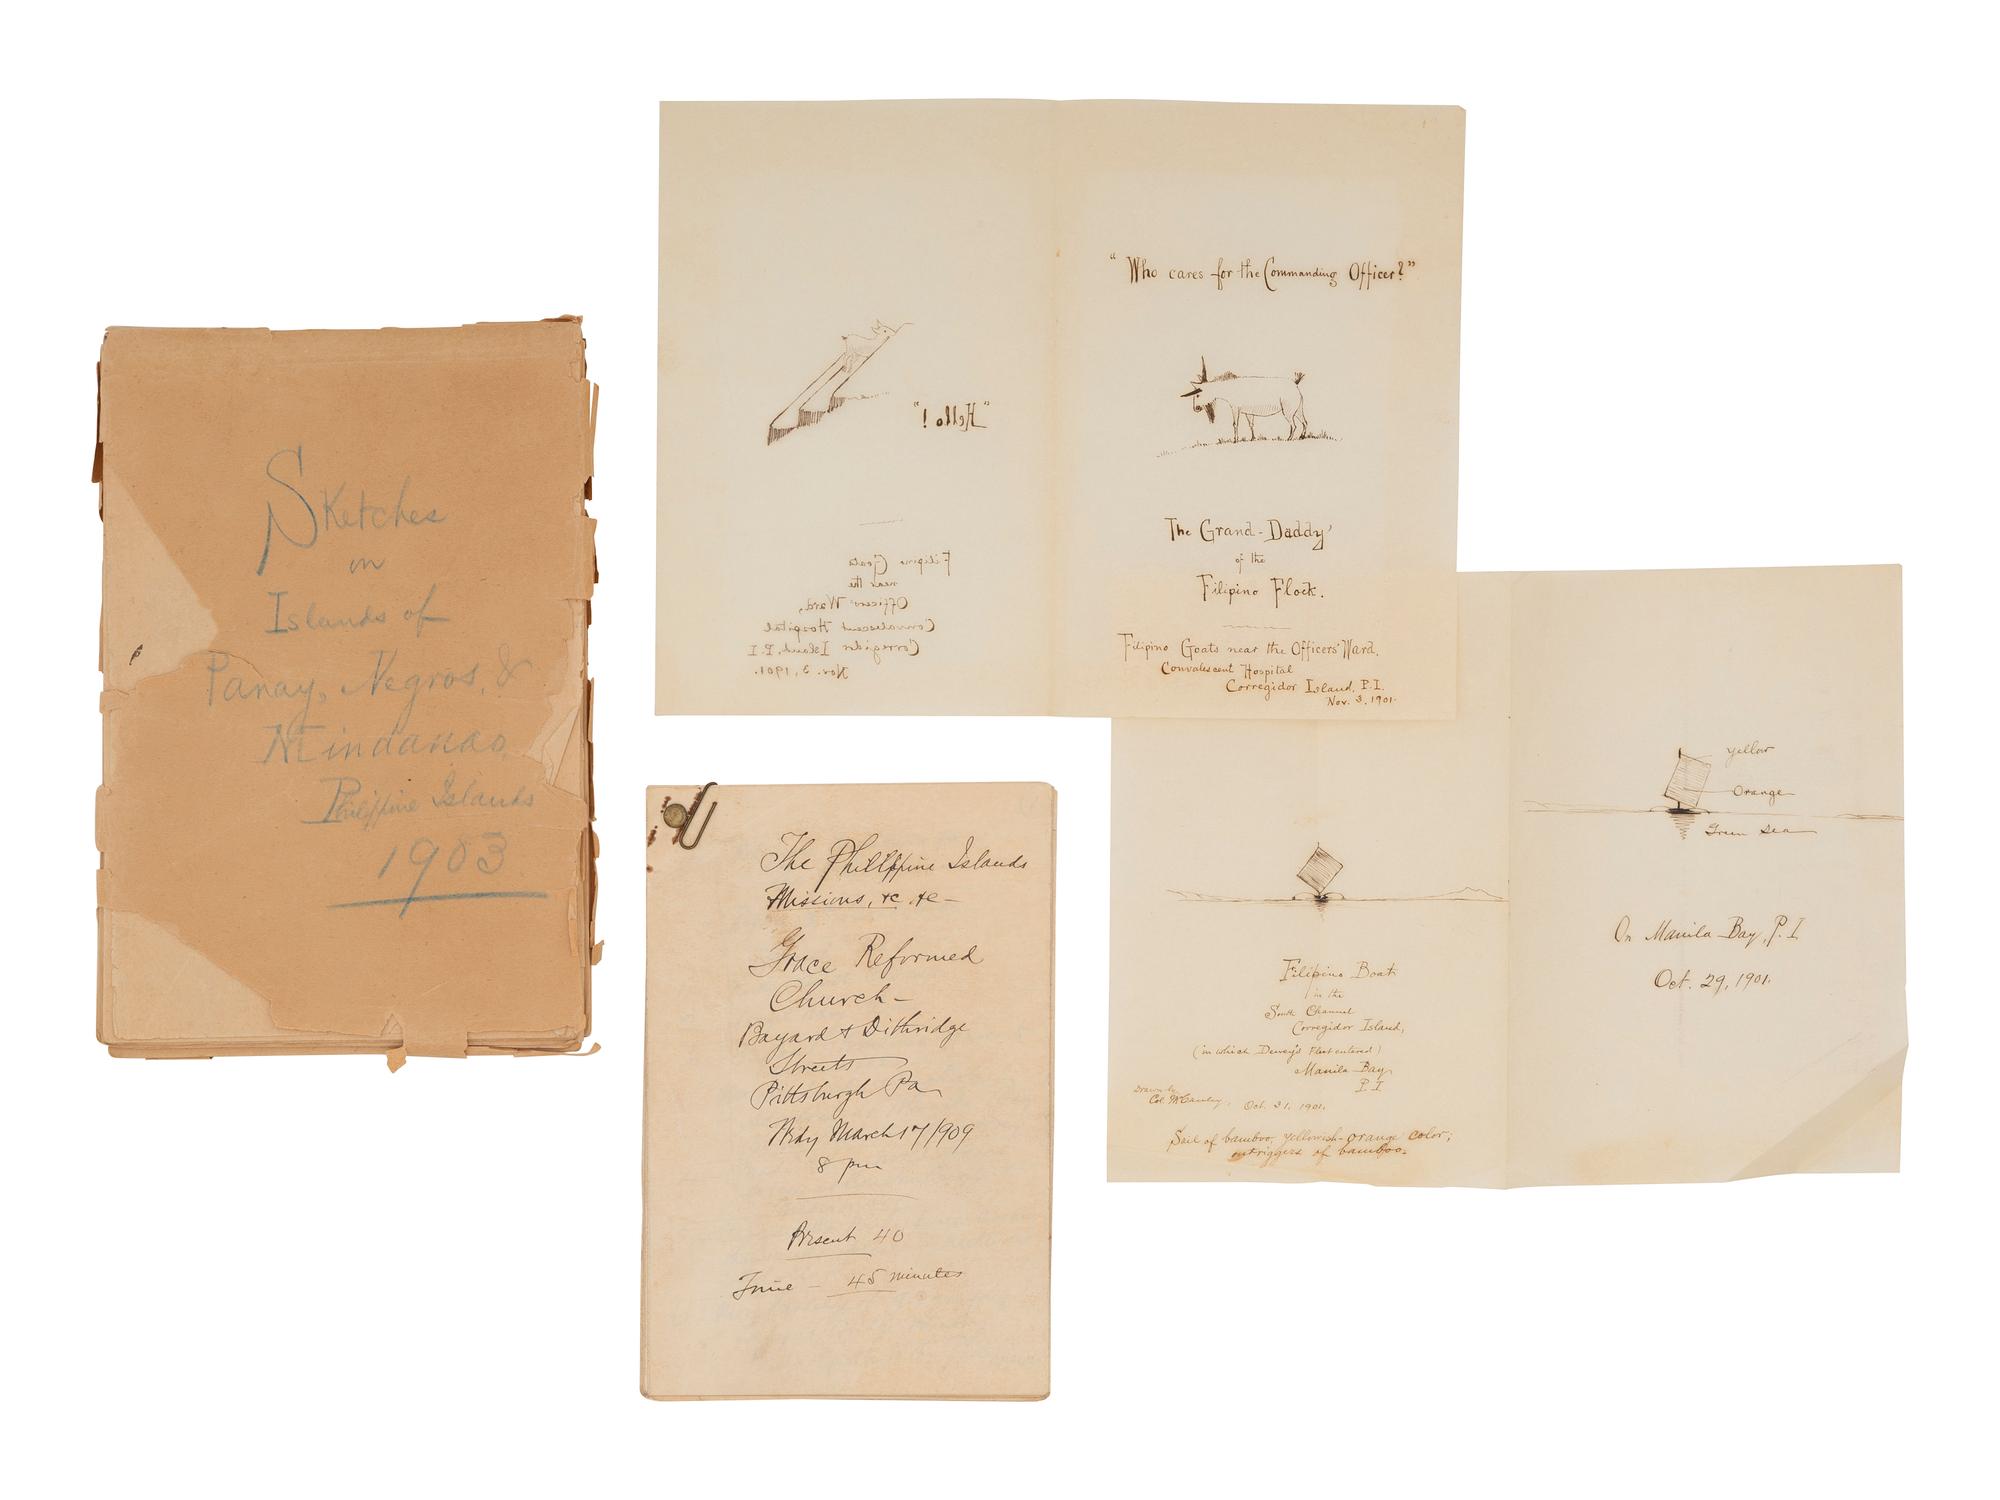 Sketches
on
Islands of
Panay, Negros, &
Mindanao,
Philippine Islands
1903
"Hello!"
Filipino Goats
near the
Officers' Ward,
Convalescent Hospital
Corregidor Island, P.I.
Nov. 3, 1901.
"Who cares for the Commanding Officer?"
The Grand-Daddy
of the
Filipino Flock.
Filipino Goats near the Officers' Ward,
Convalescent Hospital
Corregidor Island, P.I.
Nov. 3, 1901.
The Philippine Islands
Missions, &c &c –
Grace Reformed
Church –
Bayard & Dithridge
Streets
Pittsburgh Pa
Wedy March 17/1909
8 pm
Present 40
Time – 45 minutes
Filipino Boat
in the
South Channel
Corregidor Island,
(in which Dewey's Fleet entered)
Manila Bay
P.I.
Drawn by
Col. McCauley, Oct. 31. 1901.
Sail of bamboo, yellowish-orange color;
outriggers of bamboo.
Yellow
Orange
Green Sea
On Manila Bay, P.I
Oct. 29, 1901.